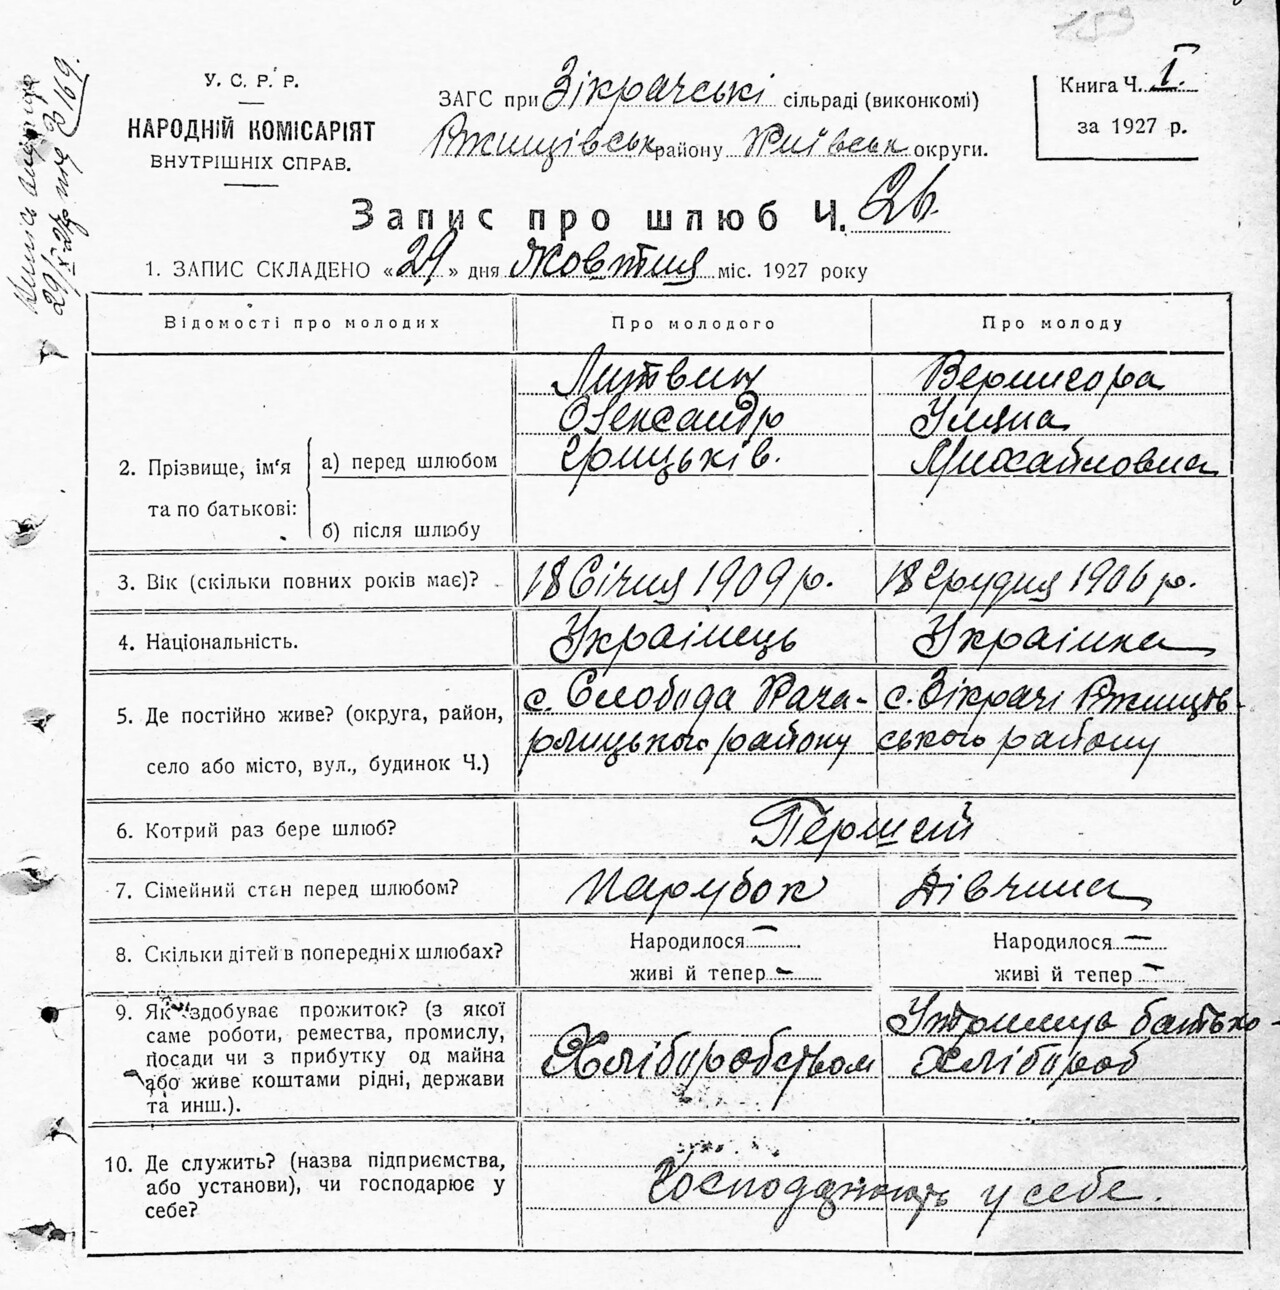 159
У. С. Р. Р.
НАРОДНІЙ КОМІСАРІЯТ
ВНУТРІШНІХ СПРАВ.
ЗАГС при Зікрачські сільраді (виконкомі)
Ржищівськ району Київськ округи.
Книга Ч. I.
за 1927 р.
Запис про шлюб Ч. 26.
1. ЗАПИС СКЛАДЕНО «29» дня Жовтня міс. 1927 року
Відомості про молодих
Про молодого
Про молоду
2. Прізвище, ім'я
та по батькові:
а) перед шлюбом
б) після шлюбу
Литвин
Олександр
Грицьків.
Вернигора
Уляна
Михайловна
3. Вік (скільки повних років має)?
18 Січня 1909 р.
18 Грудня 1906 р.
4. Національність.
Украінець
Украінка
5. Де постійно живе? (округа, район,
село або місто, вул., будинок Ч.)
с. Слобода Кага-
рлицького району
с. Зікрачі Ржищів-
ського району
6. Котрий раз бере шлюб?
Перший
7. Сімейний стан перед шлюбом?
Парубок
Дівчина
8. Скільки дітей в попередніх шлюбах?
Народилося —
живі й тепер —
Народилося —
живі й тепер —
9. Як здобуває прожиток? (з якої
саме роботи, ремества, промислу,
посади чи з прибутку од майна
або живе коштами рідні, держави
та инш.).
Хліборобством
батько-
хлібороб
10. Де служить? (назва підприємства,
або установи), чи господарює у
себе?
у себе.